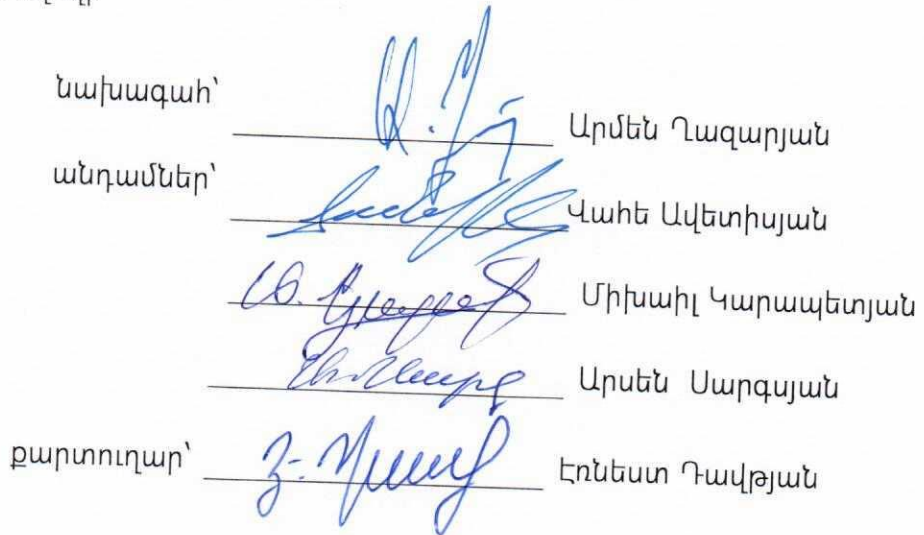 նախագահ՝ Արմեն Ղազարյան
անդամներ՝ Վահե Ավետիսյան
Միխաիլ Կարապետյան
Արսեն Սարգսյան
քարտուղար՝ Էռնեստ Դավթյան